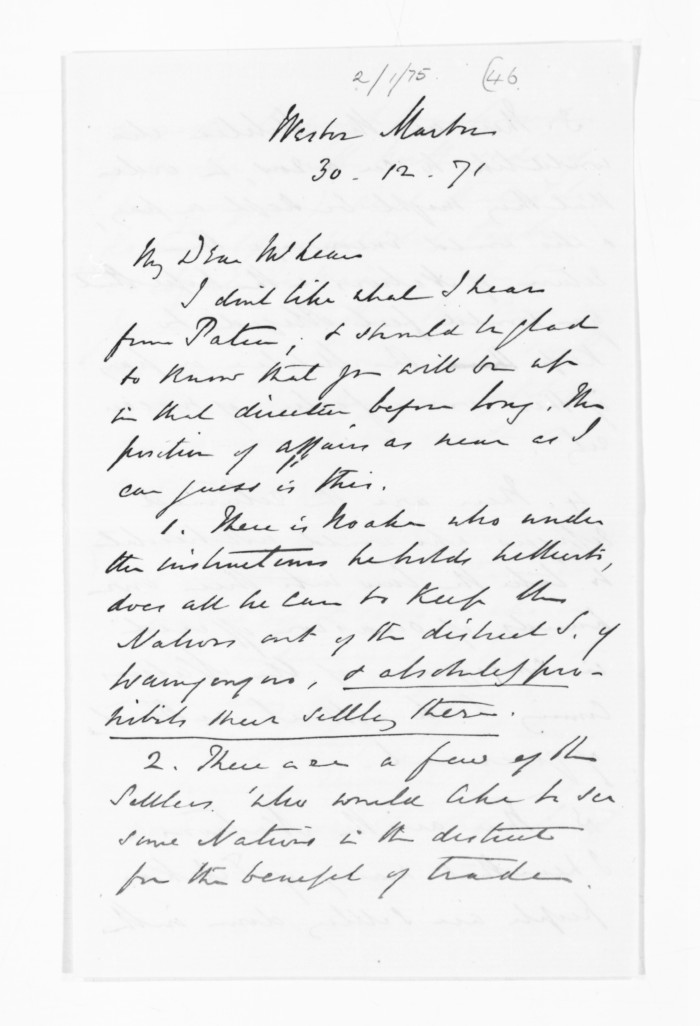 2/1/75. (46
Westoe Marton
30 . 12 . 71
My Dear McLean
I don't like what I hear
from Patea, & should be glad
to know that you will be up
in that direction before long. The
position of affairs as near as I
can guess is this.
1. There is Noake who under
the instructions he holds hitherto,
does all he can to keep the
Natives out of the district S. of
Waingongoro, & absolutely pro-
hibits their settling there.
2. There are a few of the
Settlers who would like to see
some Natives in the district
for the benefit of trade.